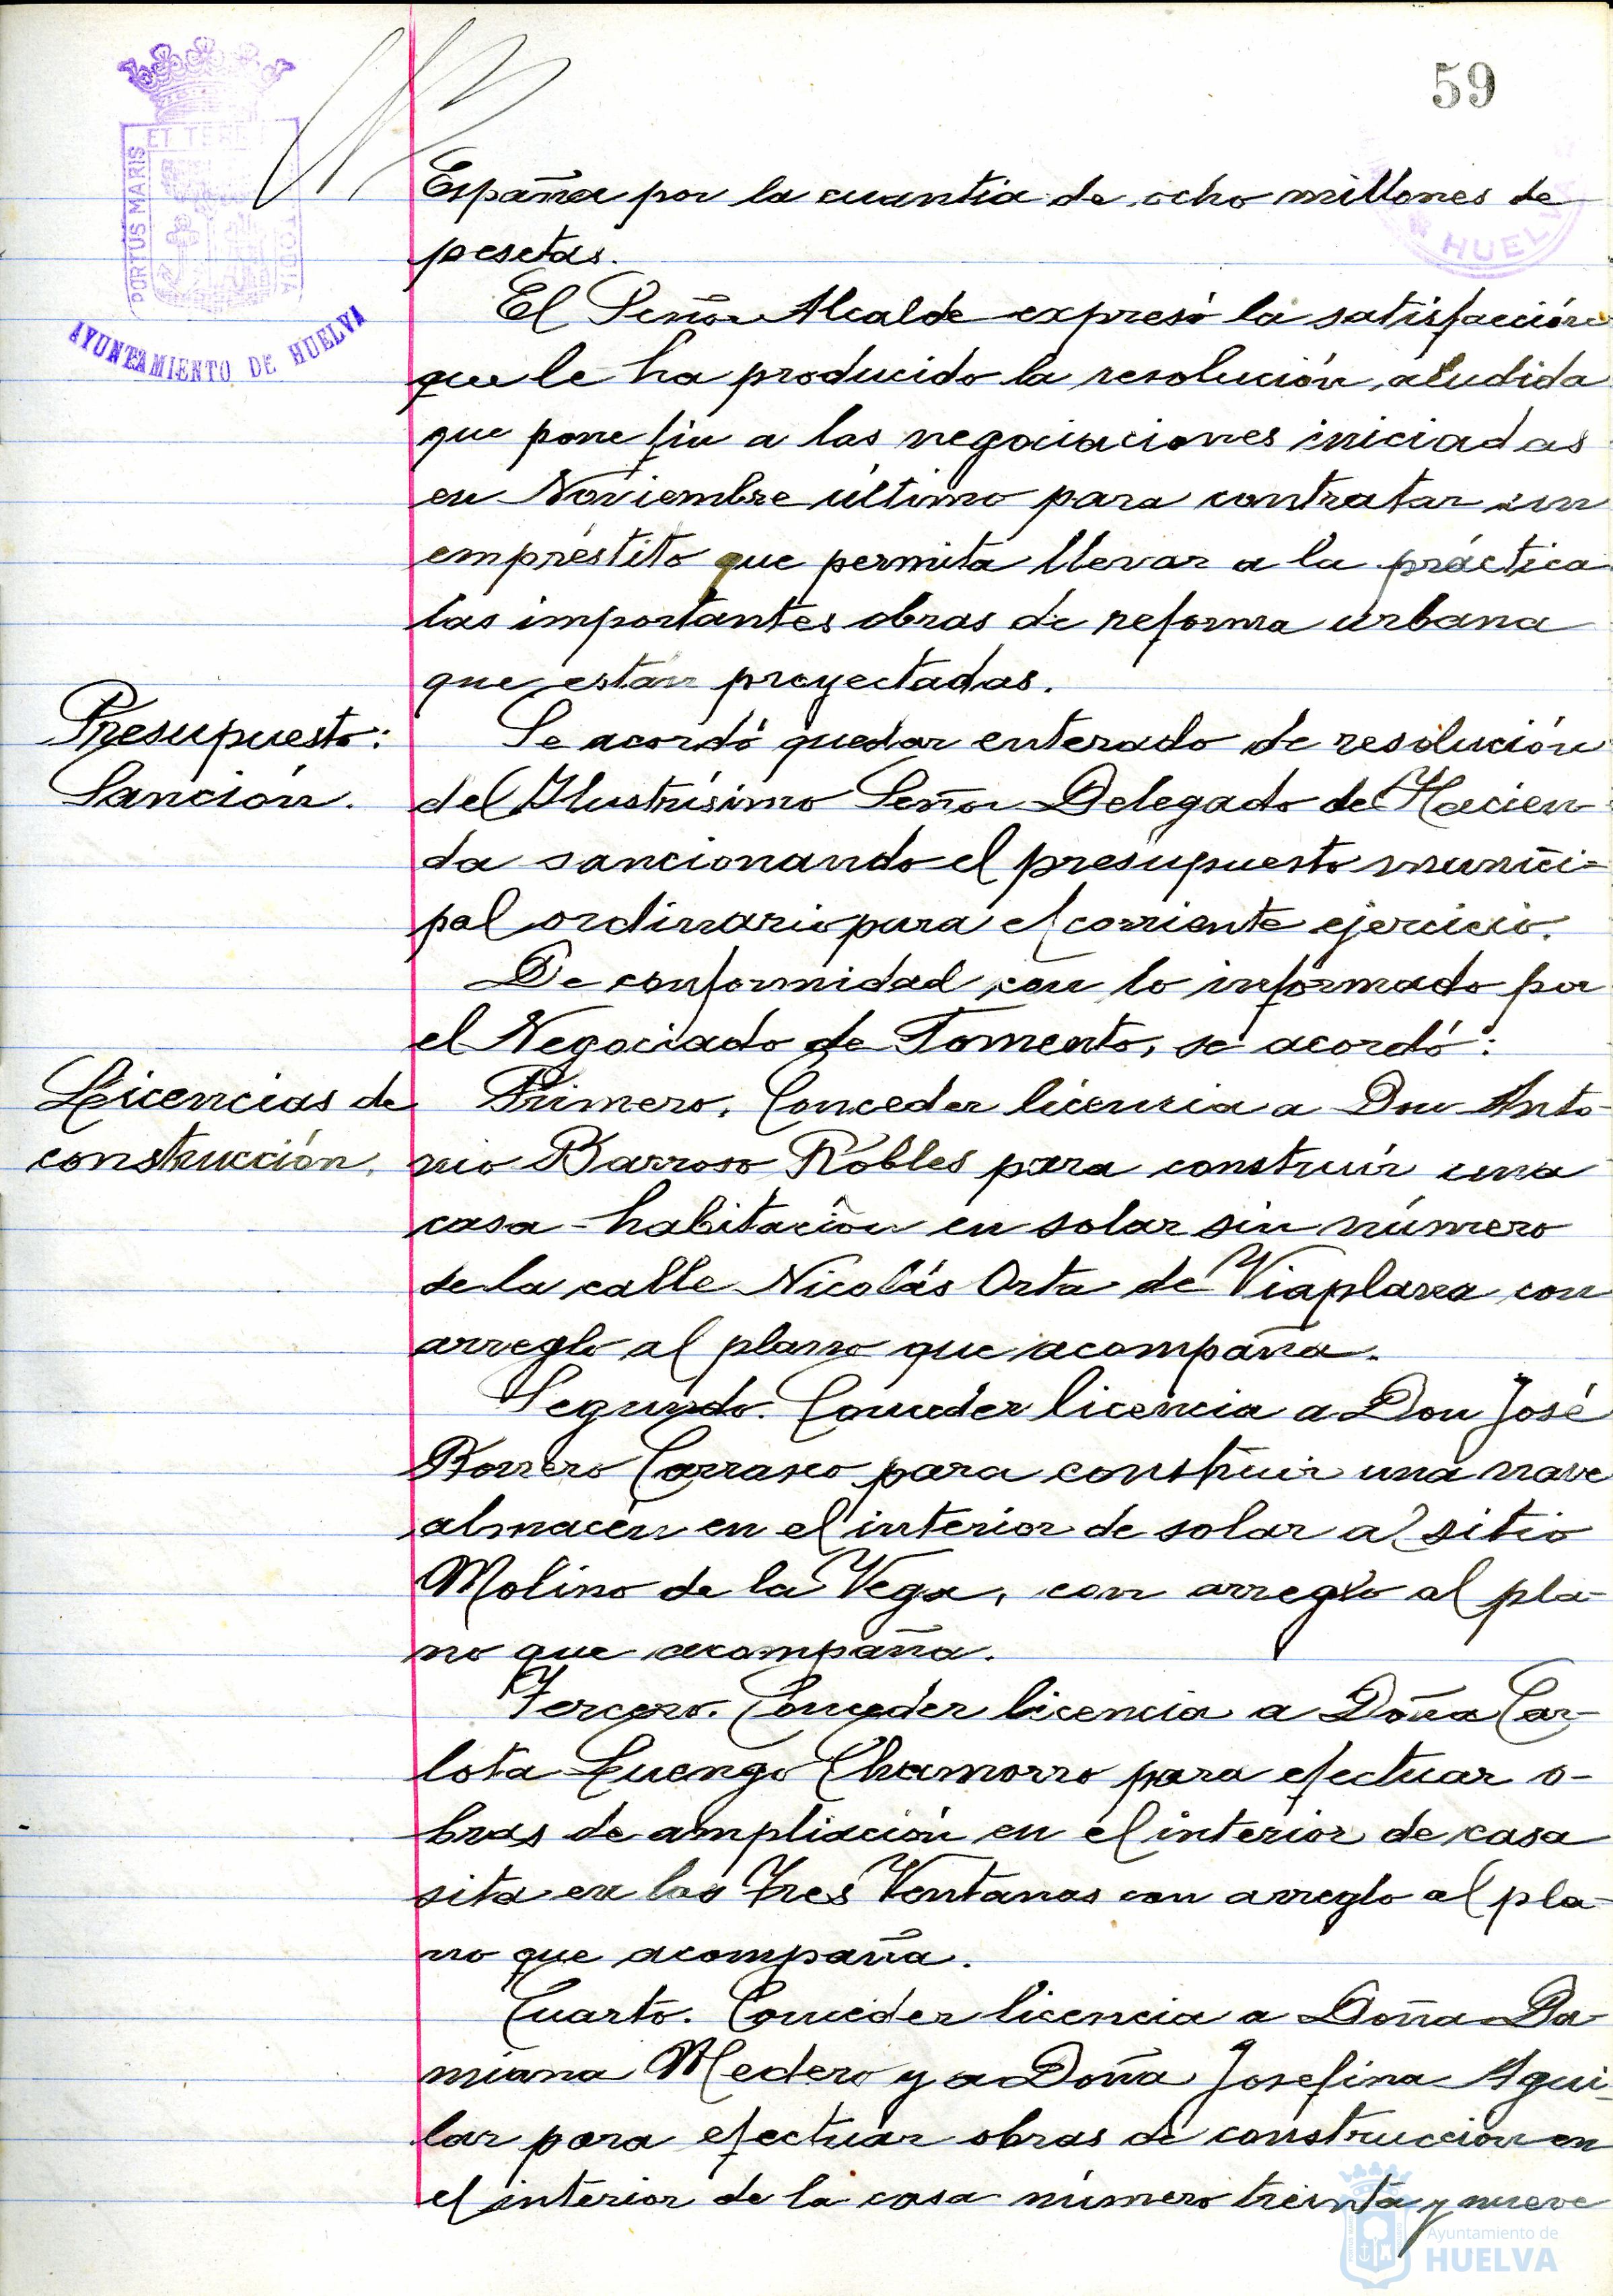 59
PORTUS MARIS
ET TERRE
CUSTODIA
AYUNTAMIENTO DE HUELVA
HUELVA
España por la cuantía de ocho millones de
pesetas.
El Señor Alcalde expresó la satisfacción
que le ha producido la resolución aludida
que pone fin a las negociaciones iniciadas
en Noviembre último para contratar un
empréstito que permita llevar a la práctica
las importantes obras de reforma urbana
que están proyectadas.
Presupuesto:
Sanción.
Se acordó quedar enterado de resolución
del Ilustrísimo Señor Delegado de Hacien
da sancionando el presupuesto munici-
pal ordinario para el corriente ejercicio.
De conformidad con lo informado por
el Negociado de Fomento, se acordó:
Licencias de
construcción.
Primero. Conceder licencia a Don Anto-
nio Barroso Robles para construir una
casa-habitación en solar sin número
de la calle Nicolás Orta de Viaplana con
arreglo al plano que acompaña.
Segundo. Conceder licencia a Don José
Borrero Carrasco para construir una nave
almacén en el interior de solar al sitio
Molino de la Vega, con arreglo al pla-
no que acompaña.
Tercero. Conceder licencia a Doña Car-
lota Luengo Chamorro para efectuar o-
bras de ampliación en el interior de casa
sita en las Tres Ventanas con arreglo al pla-
no que acompaña.
Cuarto. Conceder licencia a Doña Da
miana Medero y a Doña Josefina Agui-
lar para efectuar obras de construcción en
el interior de la casa número treinta y nueve
Ayuntamiento de
HUELVA